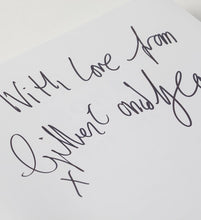 With Love from
Gilbert and Gea
x